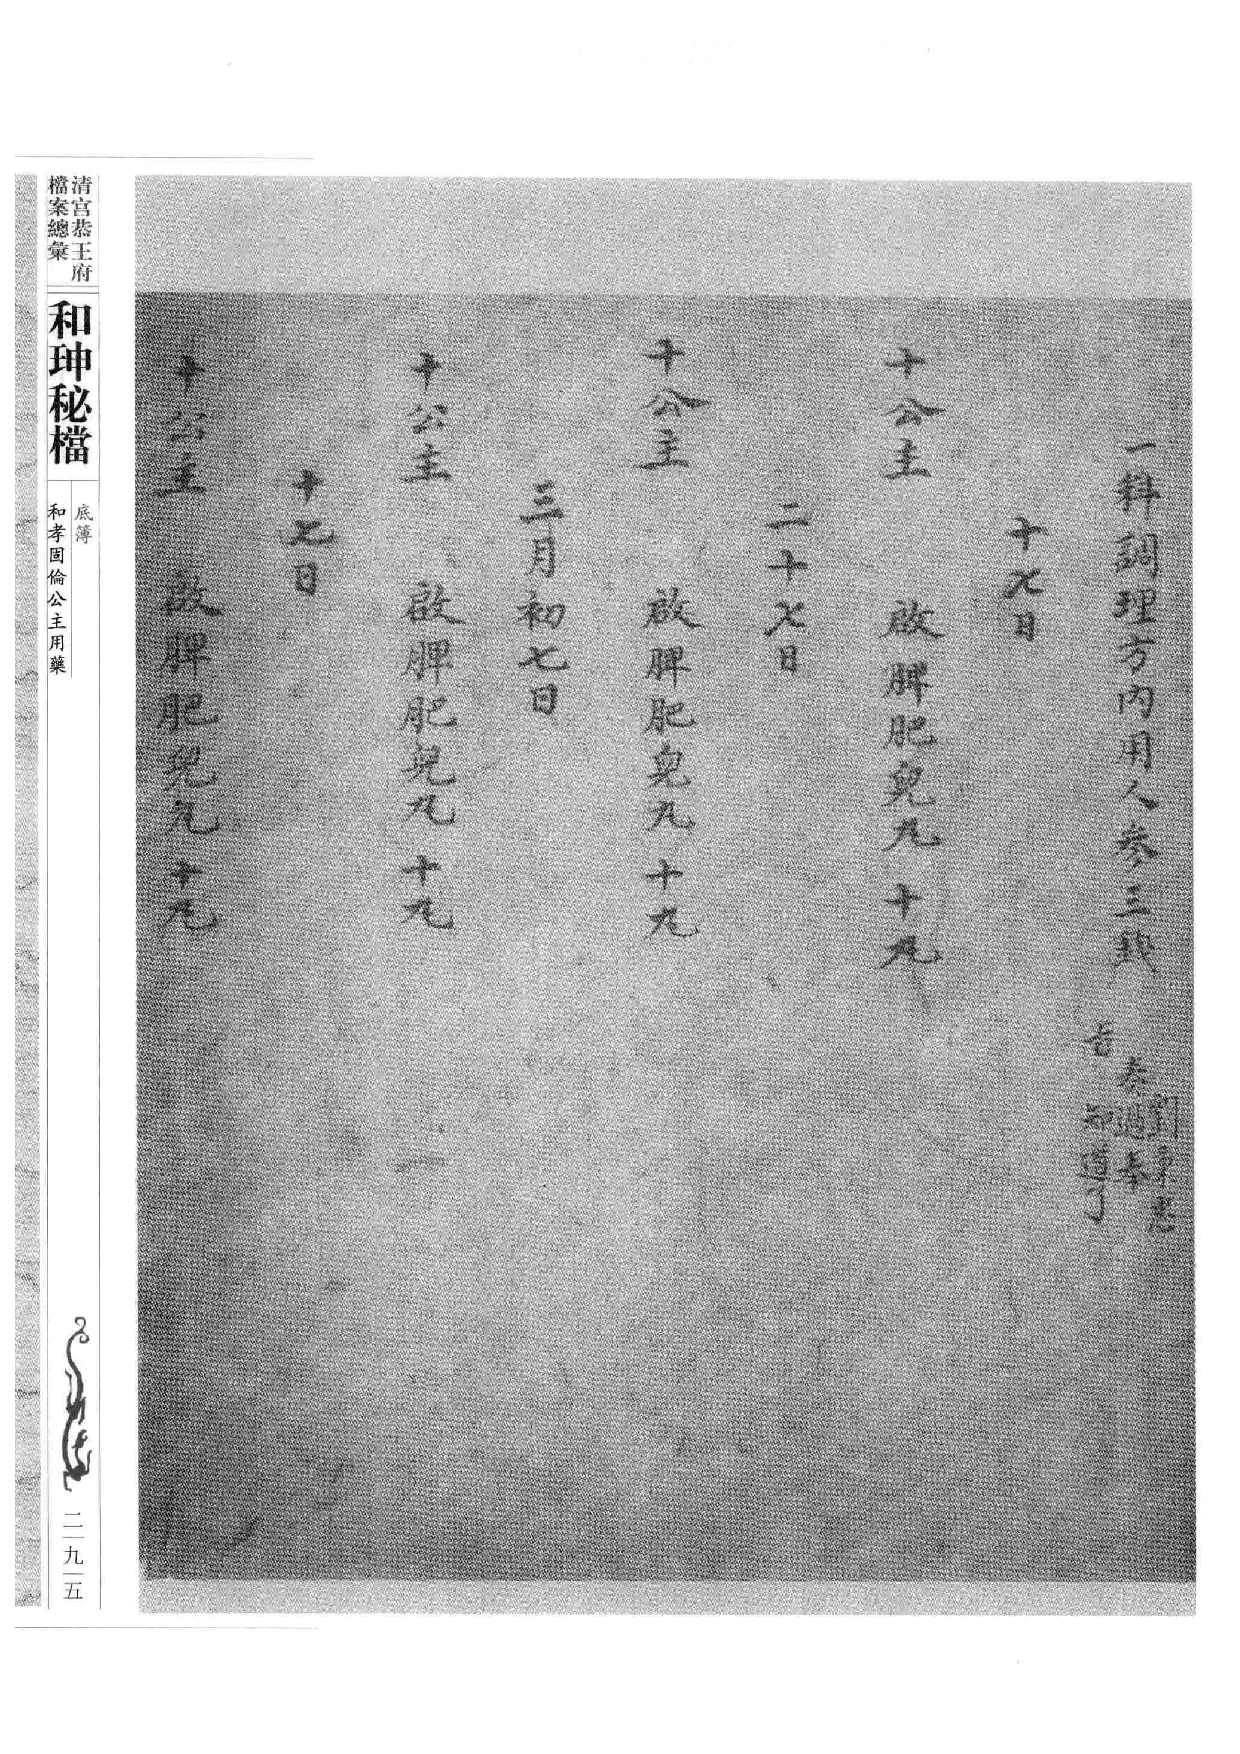 一料調理方内用人參三錢
劉秉忠
奏過奉
旨知道了
十七日
十公主 啟脾肥兒丸十丸
二十七日
十公主 啟脾肥兒丸十丸
三月初七日
十公主 啟脾肥兒丸十丸
十七日
十公主 啟脾肥兒丸十丸
清宮恭王府
檔案總彙
和珅秘檔
底簿
和孝固倫公主用藥
二九五